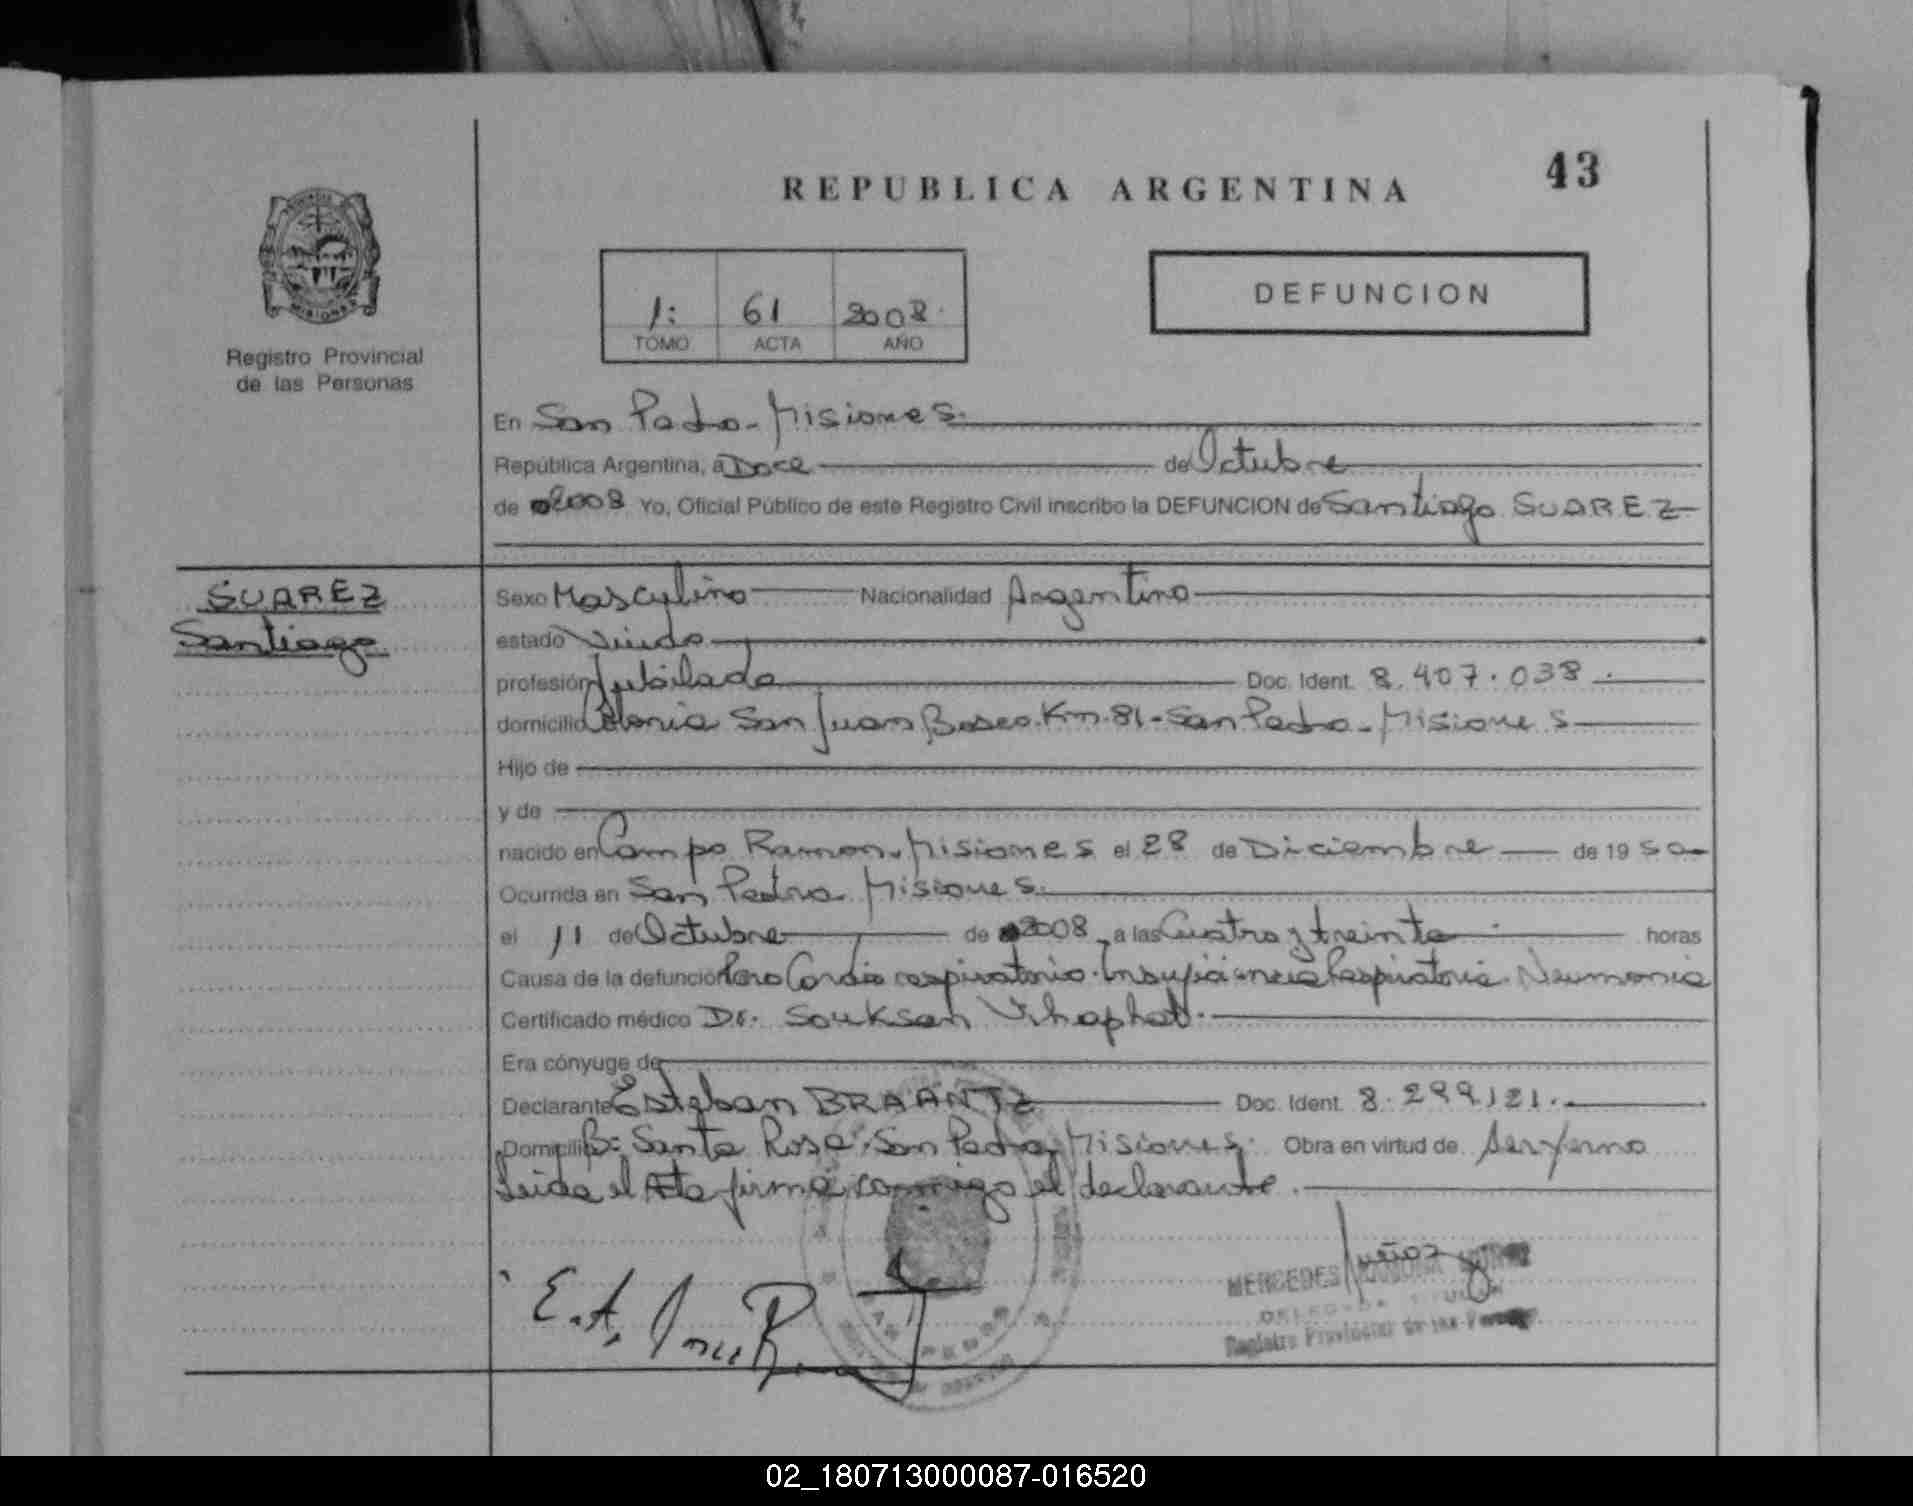 43
REPUBLICA ARGENTINA
DEFUNCION
1: 61 2008
TOMO ACTA AÑO
MISIONES
Registro Provincial
de las Personas
En San Pedro - Misiones.
República Argentina, a Doce de Octubre
de 2008 Yo, Oficial Público de este Registro Civil inscribo la DEFUNCION de Santiago SUAREZ
SUAREZ
Santiago
Sexo Masculino Nacionalidad Argentino
estado Viudo
profesión Jubilado Doc. Ident. 8.407.038.
domicilio Colonia San Juan Bosco. Km. 81 - San Pedro - Misiones
Hijo de
y de
nacido en Campo Ramon. Misiones el 28 de Diciembre de 1950
Ocurrida en San Pedro Misiones.
el 11 de Octubre de 2008 a las Cuatro y treinta horas
Causa de la defunción Paro Cardio respiratorio. Insuficiencia Respiratoria. Neumonia
Certificado médico Dr. Souksan Vihaphat.
Era cónyuge de
Declarante Esteban BRAANTZ Doc. Ident. 8.299.121.
Domicilio B: Santa Rosa. San Pedro, Misiones. Obra en virtud de ser yerno
Leida el Acta firma conmigo el declarante.
E. A.
MERCEDES
Registro Provincial de las
SAN PEDRO
02_180713000087-016520